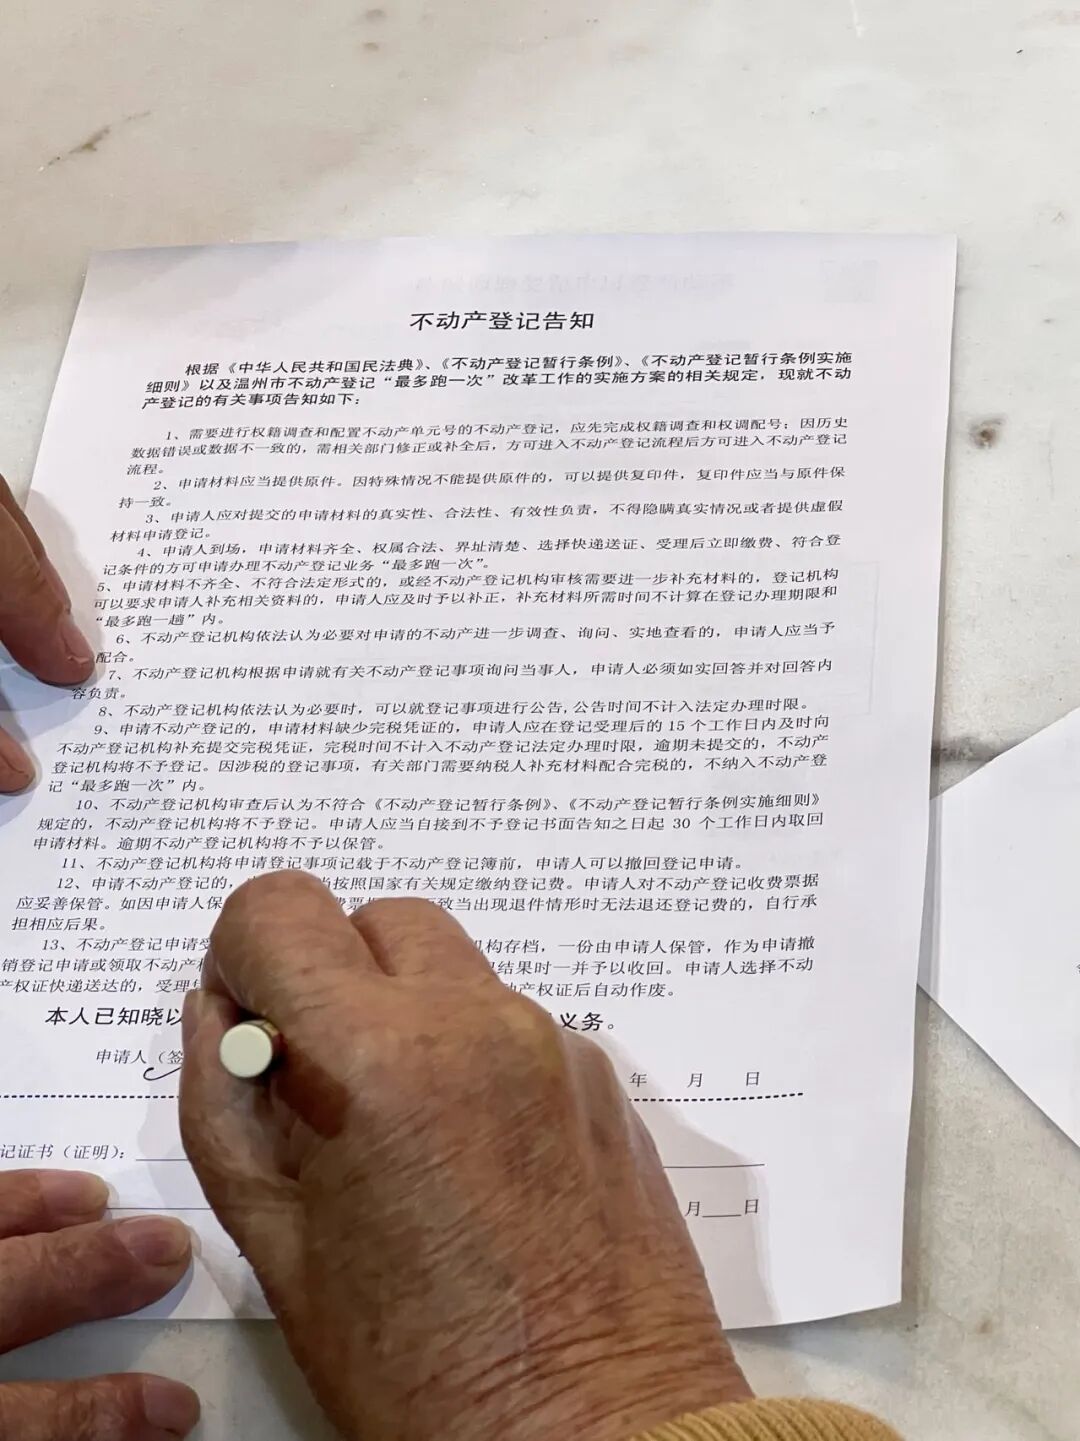 不动产登记告知
根据《中华人民共和国民法典》、《不动产登记暂行条例》、《不动产登记暂行条例实施
细则》以及温州市不动产登记“最多跑一次”改革工作的实施方案的相关规定，现就不动
产登记的有关事项告知如下：
1、需要进行权籍调查和配置不动产单元号的不动产登记，应先完成权籍调查和权调配号；因历史
数据错误或数据不一致的，需相关部门修正或补全后，方可进入不动产登记流程后方可进入不动产登记
流程。
2、申请材料应当提供原件。因特殊情况不能提供原件的，可以提供复印件，复印件应当与原件保
持一致。
3、申请人应对提交的申请材料的真实性、合法性、有效性负责，不得隐瞒真实情况或者提供虚假
材料申请登记。
4、申请人到场，申请材料齐全、权属合法、界址清楚、选择快递送证、受理后立即缴费、符合登
记条件的方可申请办理不动产登记业务“最多跑一次”。
5、申请材料不齐全、不符合法定形式的，或经不动产登记机构审核需要进一步补充材料的，登记机构
可以要求申请人补充相关资料的，申请人应及时予以补正，补充材料所需时间不计算在登记办理期限和
“最多跑一趟”内。
6、不动产登记机构依法认为必要对申请的不动产进一步调查、询问、实地查看的，申请人应当予
配合。
7、不动产登记机构根据申请就有关不动产登记事项询问当事人，申请人必须如实回答并对回答内
容负责。
8、不动产登记机构依法认为必要时，可以就登记事项进行公告，公告时间不计入法定办理时限。
9、申请不动产登记的，申请材料缺少完税凭证的，申请人应在登记受理后的 15 个工作日内及时向
不动产登记机构补充提交完税凭证，完税时间不计入不动产登记法定办理时限，逾期未提交的，不动产
登记机构将不予登记。因涉税的登记事项，有关部门需要纳税人补充材料配合完税的，不纳入不动产登
记“最多跑一次”内。
10、不动产登记机构审查后认为不符合《不动产登记暂行条例》、《不动产登记暂行条例实施细则》
规定的，不动产登记机构将不予登记。申请人应当自接到不予登记书面告知之日起 30 个工作日内取回
申请材料。逾期不动产登记机构将不予以保管。
11、不动产登记机构将申请登记事项记载于不动产登记簿前，申请人可以撤回登记申请。
12、申请不动产登记的，按照国家有关规定缴纳登记费。申请人对不动产登记收费票据
应妥善保管。如因申请人保费票致当出现退件情形时无法退还登记费的，自行承
担相应后果。
13、不动产登记申请机构存档，一份由申请人保管，作为申请撤
销登记申请或领取不动产结果时一并予以收回。申请人选择不动
产权证快递送达的，受理动产权证后自动作废。
本人已知晓以义务。
申请人（签 年 月 日
记证书（证明）：
月 日